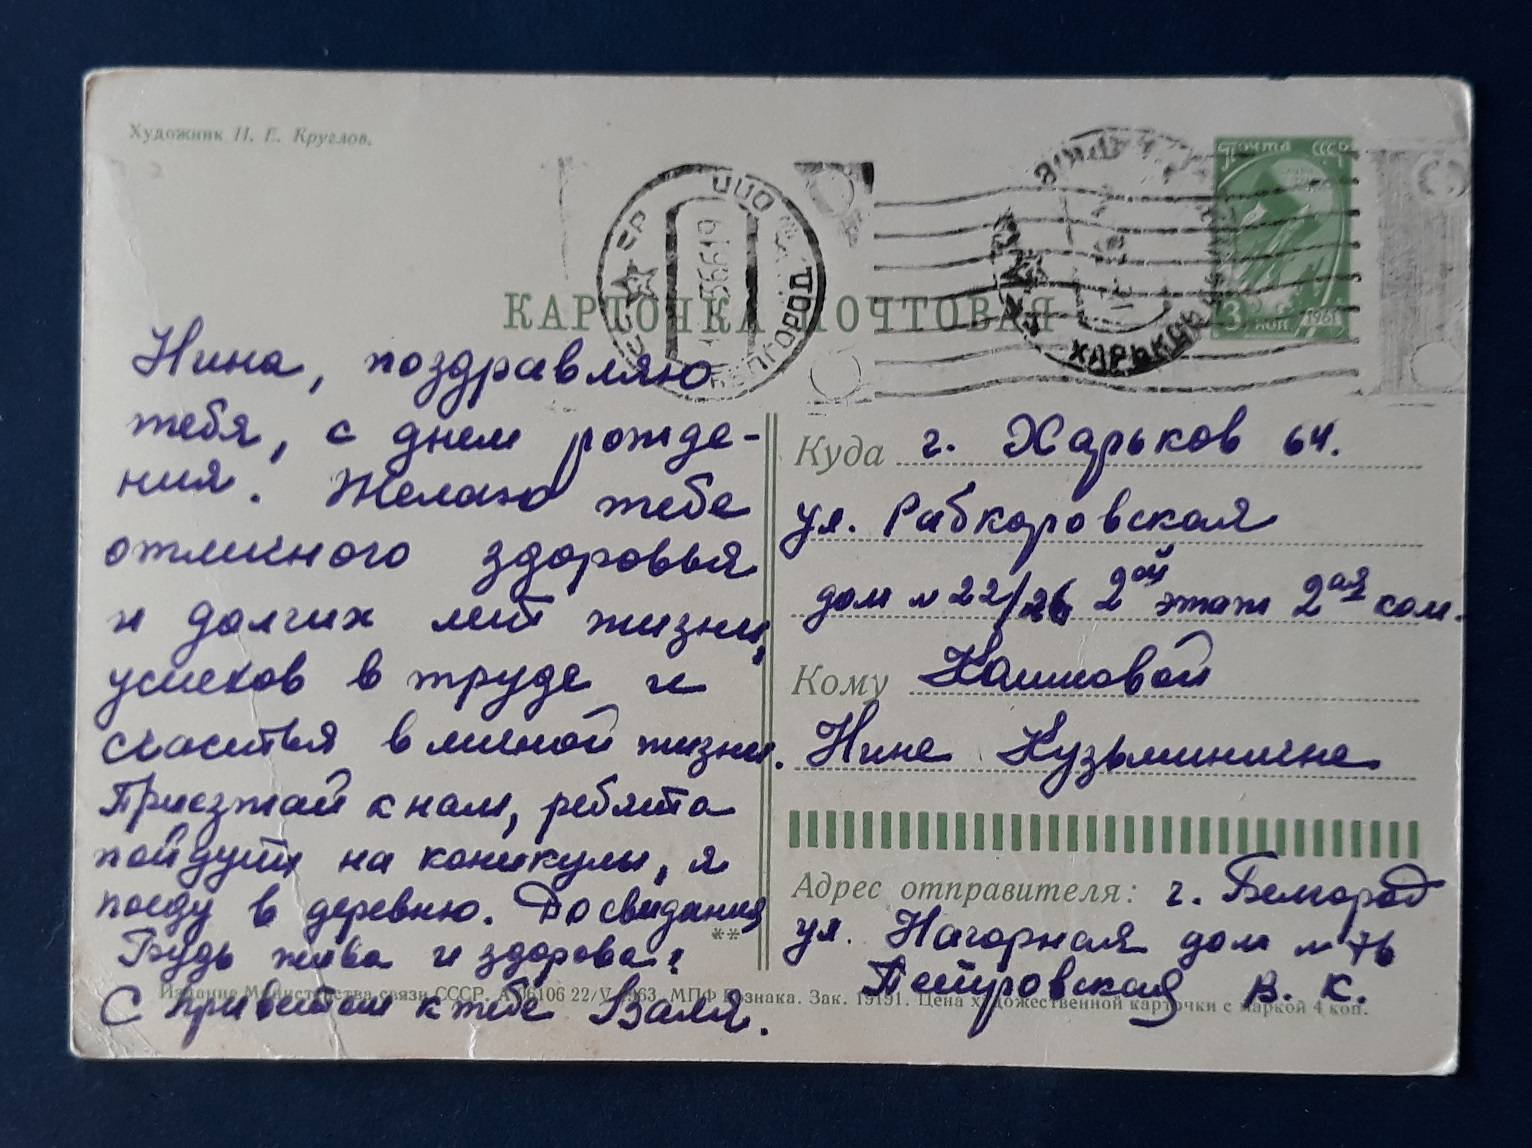 Художник П. Е. Круглов.
ПОЧТА СССР
3 КОП 1961
БЕЛГОРОД
ХАРЬКОВ
КАРТОЧКА ПОЧТОВАЯ
Нина, поздравляю
тебя, с днем рожде-
ния. Желаю тебе
отличного здоровья
и долгих лет жизни,
успехов в труде и
счастья в личной жизни.
Приезжай к нам, ребята
пойдут на каникулы, я
поеду в деревню. До свидания
Будь жива и здорова!
С приветом к тебе Валя.
**
Куда г. Харьков 64.
ул. Рабкоровская
дом № 22/26 2ой этаж 2ая ком.
Кому
Нине Кузьминичне
Адрес отправителя: г. Белгород
ул. Нагорная дом № 76
Петровская В. К.
Издание Министерства связи СССР. А 06106 22/V 1963. МПФ Гознака. Зак. 19191. Цена художественной карточки с маркой 4 коп.